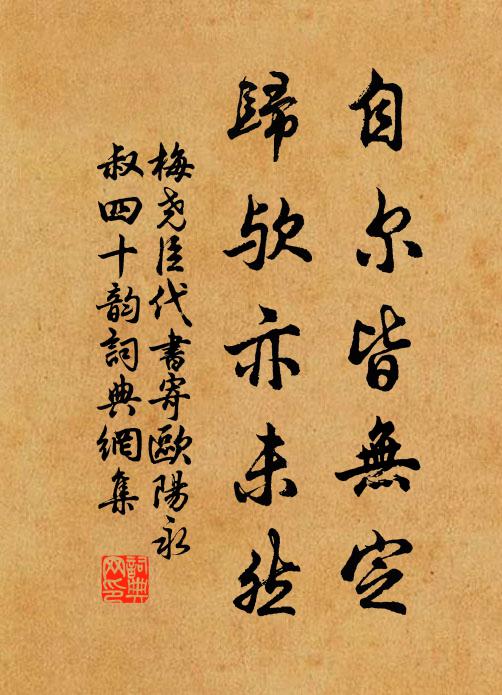 自尔皆無定
歸欤亦未然
梅尧臣代書寄歐陽永
叔四十韵詞典網集
詞典网印